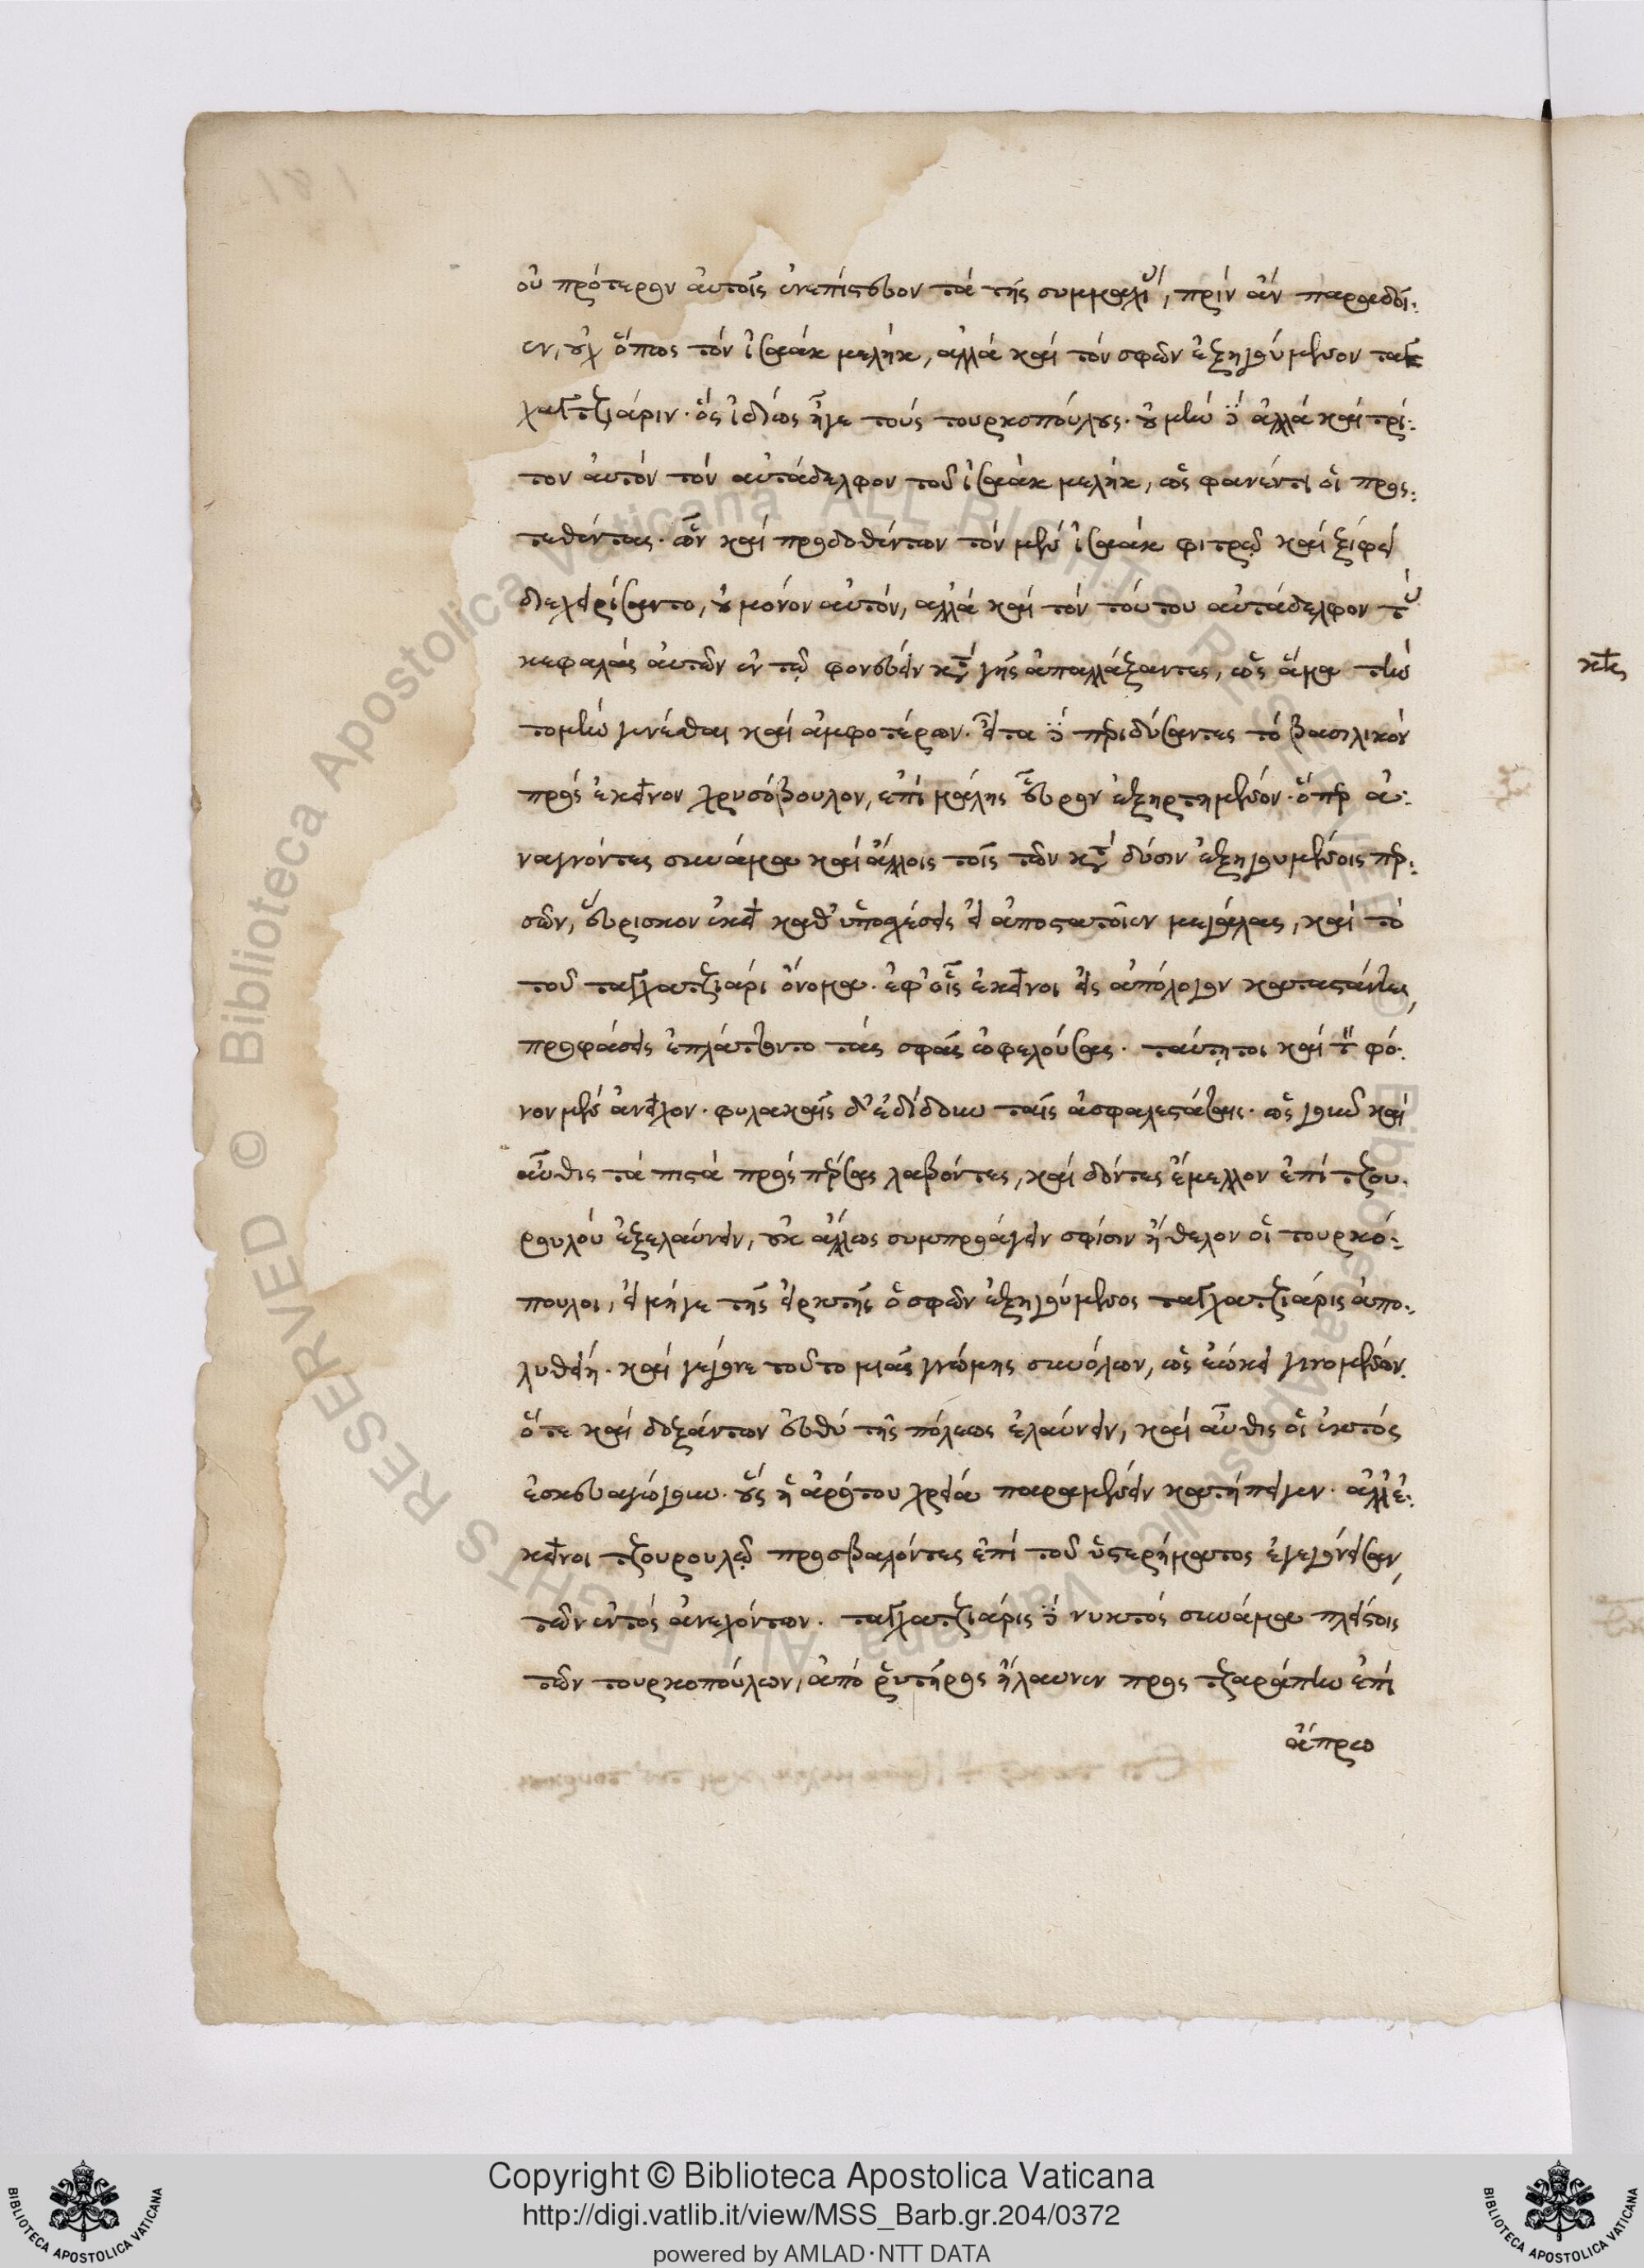 οὐ πρότερον αὐτοῖς ἐνεπίστευον τὰ τῆς συμμαχίας, πρὶν ἂν παραδοῖ
εν, οὐχ ὅπως τὸν ἰσαὰκ μελὴκ, ἀλλὰ καὶ τὸν σφῶν ἐξηγούμενον ταγ
χαντζιάριν· ὃς ἰδίως ἦγε τοὺς τουρκοπούλους· οὐ μὴν δὲ ἀλλὰ καὶ τρί
τον αὐτὸν τὸν αὐτάδελφον τοῦ ἰσαὰκ μελὴκ, ὡς φανέντι οἱ προς
τεθέντας· ὧν καὶ προδοθέντων τὸν μὲν ἰσαὰκ φιτρῶ καὶ ξίφει
διεχειρίσαντο, οὐ μόνον αὐτὸν, ἀλλὰ καὶ τὸν τούτου αὐτάδελφον τὰς
κεφαλὰς αὐτῶν ἐν τῷ φονεύειν κατὰ γῆς ἀπαλλάξαντες, ὡς ἅμα τὴν
τομὴν γενέσθαι καὶ ἀμφοτέρων· εἶτα δὲ περιδύσαντες τὸ βασιλικὸν
πρὸς ἐκεῖνον χρυσόβουλον, ἐπὶ μάλης εὗρον ἐξηρτημένον· ὅπερ ἀ
ναγνόντες συνάμα καὶ ἄλλοις τοῖς τῶν κατὰ δύσιν ἐξηγουμένοις περ
σῶν, εὕρισκον ἐκεῖ καθ' ὑποσχέσεις εἰ ἀποσταῖεν μεγάλας, καὶ τὸ
τοῦ ταγχαντζιάρι ὄνομα· ἐφ' οἷς ἐκεῖνοι εἰς ἀπόλογον καταστάντες,
προφάσεις ἐπλάττοντο τὰς σφᾶς ὠφελούσας· ταύτῃτοι καὶ τὸν φό
νον μὲν ἀνεῖχον· φυλακαῖς δ' ἐδίδουν ταῖς ἀσφαλεστάταις· ὡς γοῦν καὶ
αὖθις τὰ πιστὰ πρὸς πέρσας λαβόντες, καὶ δόντες ἔμελλον ἐπὶ τζου
ρουλοῦ ἐξελαύνειν, οὐκ ἄλλως συμπράγειν σφίσιν ἤθελον οἱ τουρκό
πουλοι, εἰ μή γε τῆς εἱρκτῆς ὁ σφῶν ἐξηγούμενος ταγχαντζιάρις ἀπο
λυθείη· καὶ γέγονε τοῦτο μιᾶς γνώμης συνόλων, ὡς ἐώκει γινομένων.
ὅτε καὶ δοξάντων εὐθὺ τῆς πόλεως ἐλαύνειν, καὶ αὖθις οἱ ἐκτὸς
ἐσκευαγώγουν· οὓς ἡ ἀρότου χρεία παραμένειν κατήπειγεν· ἀλλ' ἐ
κεῖνοι τζουρουλῶ προσβαλόντες ἐπὶ τοῦ ὑστερήματος ἐγεγόνεισαν,
τῶν ἐντὸς ἀνεχόντων· ταγχαντζιάρις δὲ νυκτὸς συνάμα πλείστοις
τῶν τουρκοπούλων, ἀπὸ ῥυτῆρος ἤλαυνεν πρὸς τζαράπην ἐπὶ
ἄπρω
Copyright © Biblioteca Apostolica Vaticana
http://digi.vatlib.it/view/MSS_Barb.gr.204/0372
powered by AMLAD·NTT DATA